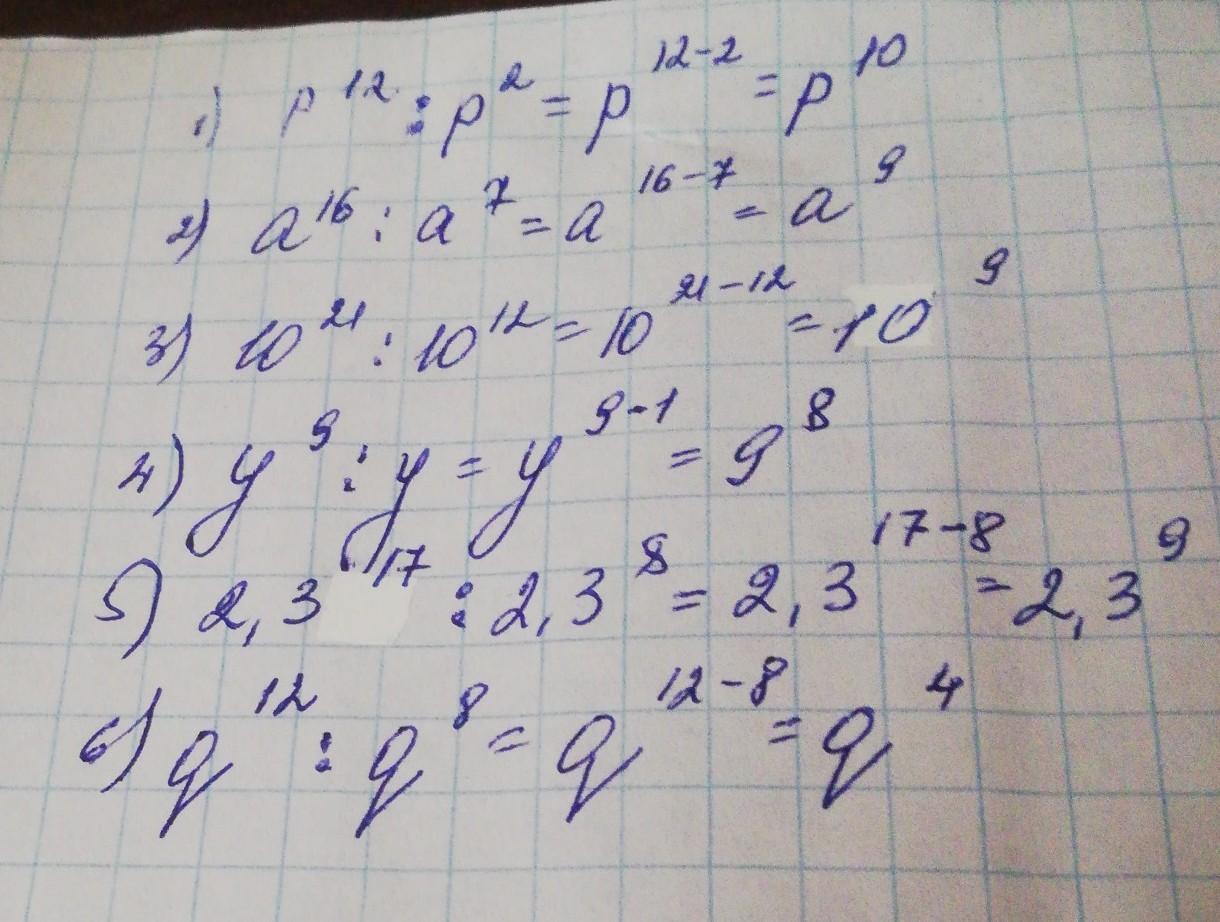 1) p¹² : p² = p¹²⁻² = p¹⁰
2) a¹⁶ : a⁷ = a¹⁶⁻⁷ = a⁹
3) 10²¹ : 10¹² = 10²¹⁻¹² = 10⁹
4) y⁹ : y = y⁹⁻¹ = 9⁸
5) 2,3¹⁷ : 2,3⁸ = 2,3¹⁷⁻⁸ = 2,3⁹
6) q¹² : q⁸ = q¹²⁻⁸ = q⁴